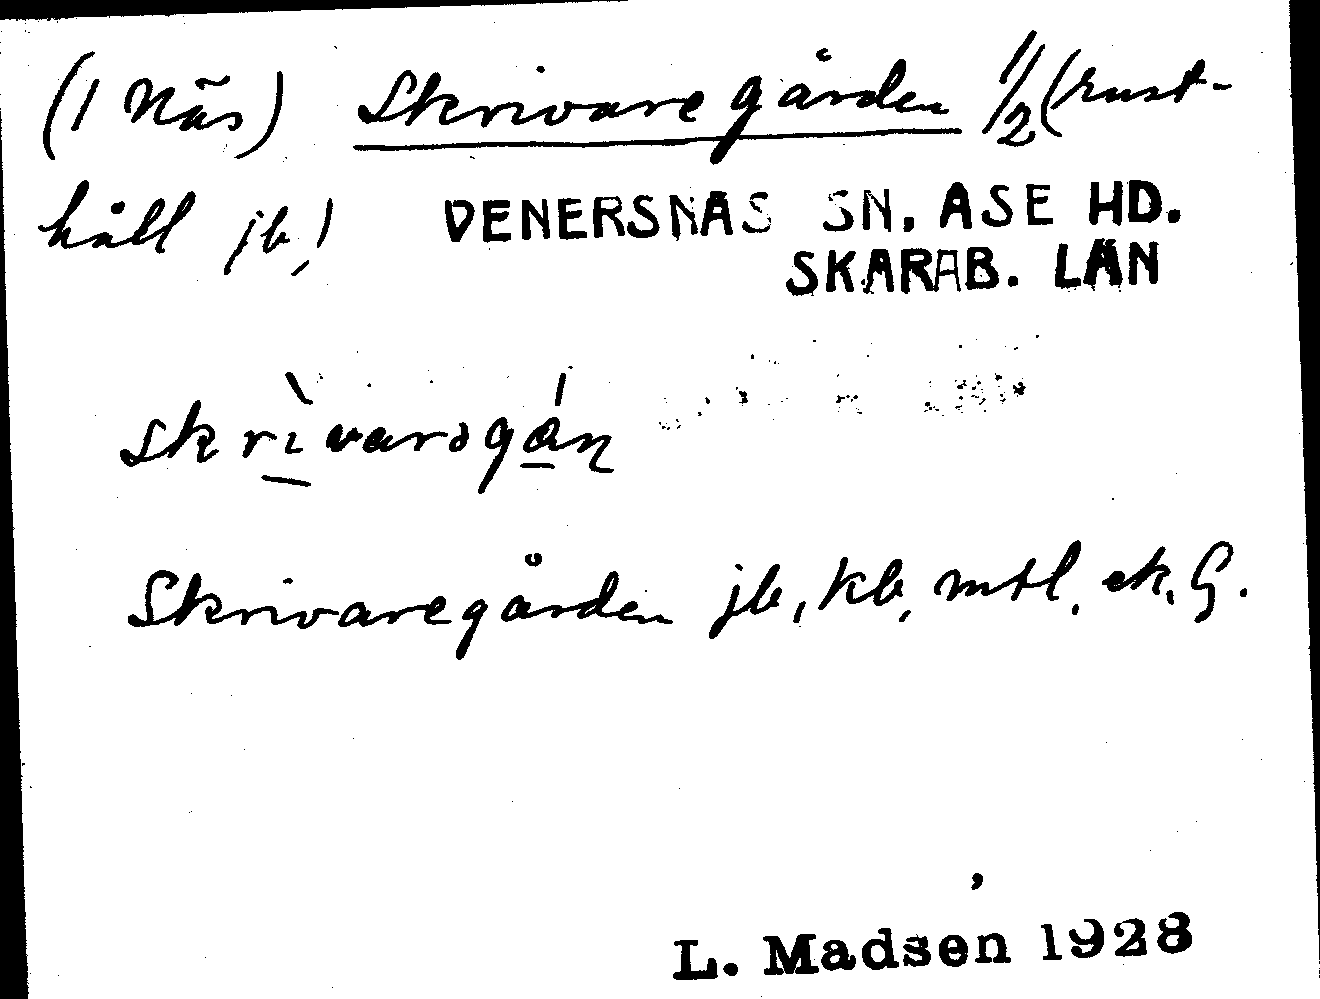 (1 Näs) Skrivaregården 1/2 (rust-
håll jb.)
VENERSNÄS SN. ÅSE HD.
SKARAB. LÄN
skrìvarəgán
Skrivaregården jb, kb, mtl, ek. G.
L. Madsen 1928